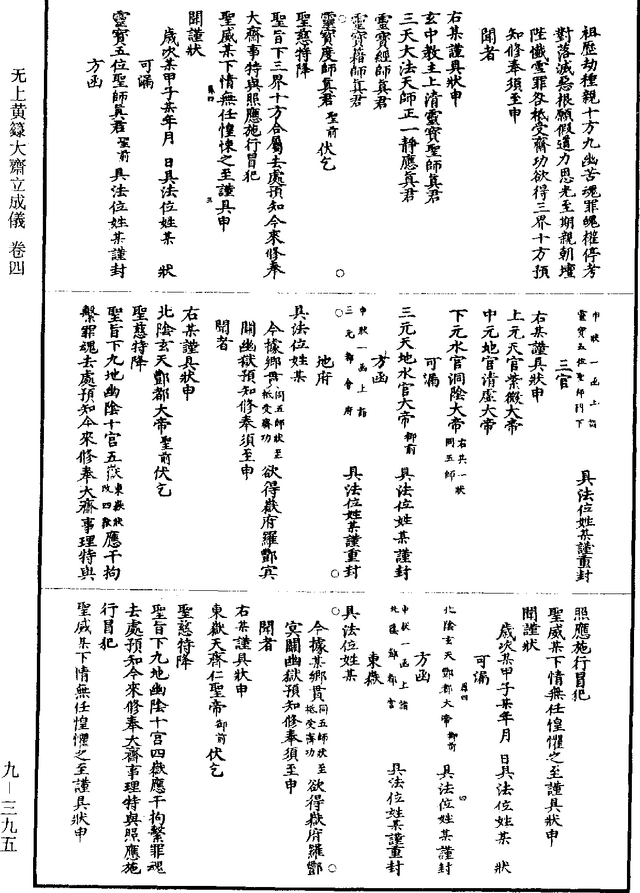 祖歷劫種親十方九幽苦魂罪魄權停考
對落滅惡根願假道力恩光至期親朝壇
陛懺雪罪咎祗受齋功欲得三界十方預
知修奉須至申
聞者
右某謹具狀申
玄中教主上清靈寶聖師眞君
三天大法天師正一靜應眞君
靈寶經師眞君
靈寶籍師眞君
靈寶度師眞君聖前伏乞
聖慈特降
聖旨下三界十方合屬去處預知今來修奉
大齋事特與照應施行冒犯
聖威某下情無任惶悚之至謹具申
聞謹狀
歲次某甲子某年月 日具法位姓某 狀
可漏
靈寶五位聖師眞君聖前 具法位姓某謹封
方函
中狀一函上詣
靈寶五位聖師門下 具法位姓某謹重封
三官
右某謹具狀申
上元天官紫微大帝
中元地官清虛大帝
下元水官洞陰大帝右共一狀同五師
可漏
三元天地水官大帝御前 具法位姓某謹封
方函
中狀一函上詣
三元都會府 具法位姓某謹重封
地府
具法位姓某
今據鄉貫同五師狀至祗受齋功欲得嶽府羅酆冥
關幽獄預知修奉須至申
聞者
右某謹具狀申
北陰玄天酆都大帝聖前伏乞
聖慈特降
聖旨下九地幽陰十宮五嶽東嶽狀改四嶽應干拘
繫罪魂去處預知今來修奉大齋事理特與
照應施行冒犯
聖威某下情無任惶懼之至謹具狀申
聞謹狀
歲次某甲子某年月 日具法位姓某 狀
可漏
北陰玄天酆都大帝御前 具法位姓某謹封
方函
中狀一函上詣
北陰酆都宮 具法位姓某謹重封
東嶽
具法位姓某
今據某鄉貫同五師狀至祗受齋功欲得嶽府羅酆
冥關幽獄預知修奉須至申
聞者
右某謹具狀申
東嶽天齊仁聖帝御前伏乞
聖慈特降
聖旨下九地幽陰十宮四嶽應干拘繫罪魂
去處預知今來修奉大齋事理特與照應施
行冒犯
聖威某下情無任惶懼之至謹具狀申
无上黃籙大齋立成儀 卷四
九—三九五